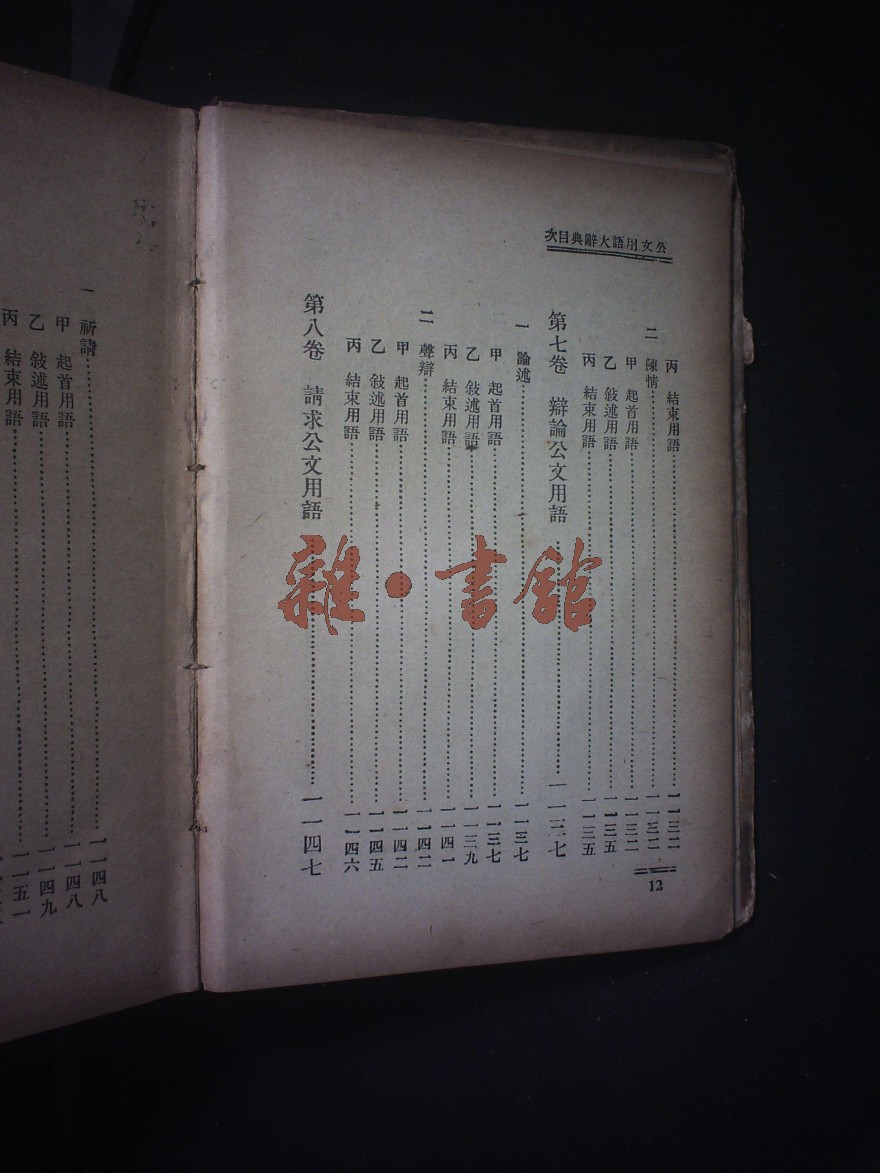 公文用語大辭典目次
丙 結束用語……一一三二
二 陳情……一一三二
甲 起首用語……一一三二
乙 敍述用語……一一三五
丙 結束用語……一一三五
第七卷 辯論公文用語……一一三七
一 論述……一一三七
甲 起首用語……一一三七
乙 敍述用語……一一三九
丙 結束用語……一一四一
二 聲辯……一一四二
甲 起首用語……一一四二
乙 敍述用語……一一四五
丙 結束用語……一一四六
第八卷 請求公文用語……一一四七
12
一 祈請……一一四八
甲 起首用語……一一四八
乙 敍述用語……一一四九
丙 結束用語……一一五一
雜·書館